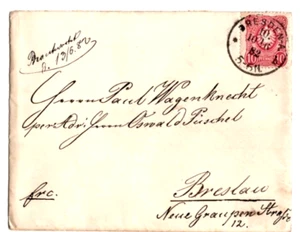 Beantwortet
d. 13/6.82
DRESDEN-A.
10
Herrn Paul Wagenknecht
per Adr. Herrn Oswald Püschel
frc.
Breslau
Neue Graupen Straße
12.